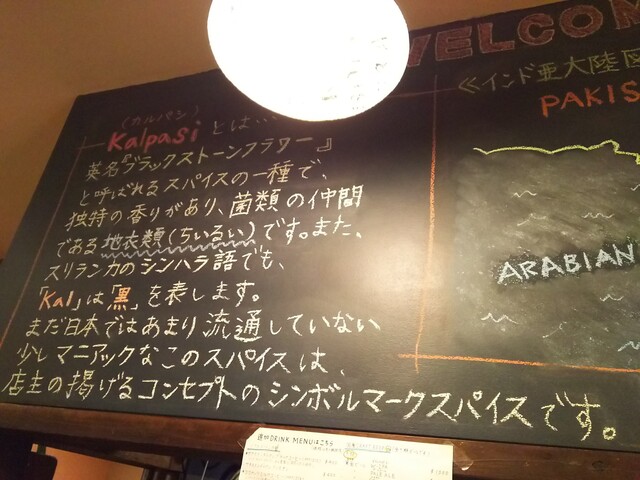 WELCOM
≪インド亜大陸
PAKIS
(カルパシ)
Kalpasiとは…
英名『ブラックストーンフラワー』
と呼ばれるスパイスの一種で、
独特の香りがあり、菌類の仲間
である地衣類(ちいるい)です。また、
スリランカのシンハラ語でも、
「Kal」は「黒」を表します。
まだ日本ではあまり流通していない
少しマニアックなこのスパイスは、
店主の掲げるコンセプトのシンボルマークスパイスです。
ARABIAN
DRINK MENUはこちら